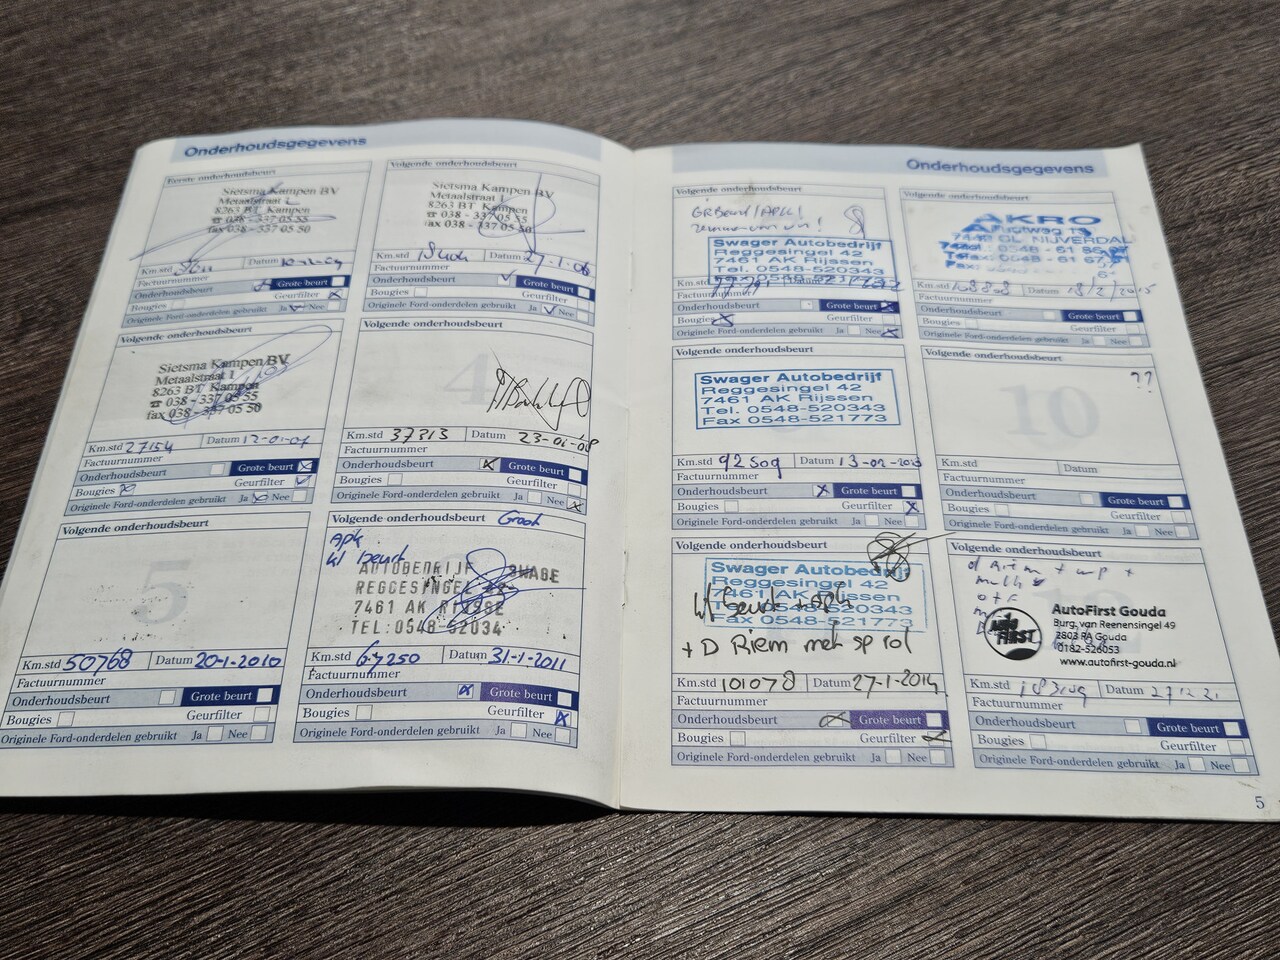 Onderhoudsgegevens
Eerste onderhoudsbeurt
Sietsma Kampen BV
Metaalstraat 1
8263 BT Kampen
☎ 038 - 337 05 55
fax 038 - 337 05 50
Km.std Datum
Factuurnummer
Onderhoudsbeurt Grote beurt
Bougies Geurfilter
Originele Ford-onderdelen gebruikt Ja Nee
Volgende onderhoudsbeurt
Sietsma Kampen BV
Metaalstraat 1
8263 BT Kampen
☎ 038 - 337 05 55
fax 038 - 337 05 50
Km.std Datum 27-1-06
Factuurnummer
Onderhoudsbeurt Grote beurt
Bougies Geurfilter
Originele Ford-onderdelen gebruikt Ja Nee
Volgende onderhoudsbeurt
Sietsma Kampen BV
Metaalstraat 1
8263 BT Kampen
☎ 038 - 337 05 55
fax 038 - 337 05 50
Km.std 27154 Datum 12-01-07
Factuurnummer
Onderhoudsbeurt Grote beurt
Bougies Geurfilter
Originele Ford-onderdelen gebruikt Ja Nee
Volgende onderhoudsbeurt
4
Km.std 37313 Datum 23-01-08
Factuurnummer
Onderhoudsbeurt Grote beurt
Bougies Geurfilter
Originele Ford-onderdelen gebruikt Ja Nee
Volgende onderhoudsbeurt
5
Km.std 50768 Datum 20-1-2010
Factuurnummer
Onderhoudsbeurt Grote beurt
Bougies Geurfilter
Originele Ford-onderdelen gebruikt Ja Nee
Volgende onderhoudsbeurt Groot
Apk
kl beurt
AUTOBEDRIJF SWAGE
REGGESINGEL 42
7461 AK RIJSSE
TEL:0548-52034
Km.std 67250 Datum 31-1-2011
Factuurnummer
Onderhoudsbeurt Grote beurt
Bougies Geurfilter
Originele Ford-onderdelen gebruikt Ja Nee
Onderhoudsgegevens
Volgende onderhoudsbeurt
GRBeurt/APK!
Swager Autobedrijf
Reggesingel 42
7461 AK Rijssen
Tel. 0548-520343
Fax 0548-521773
Factuurnummer
Onderhoudsbeurt Grote beurt
Bougies Geurfilter
Originele Ford-onderdelen gebruikt Ja Nee
Volgende onderhoudsbeurt
AKRO
NIJVERDAL
Km.std 108858 Datum 18/2/2015
Factuurnummer
Onderhoudsbeurt Grote beurt
Bougies Geurfilter
Originele Ford-onderdelen gebruikt Ja Nee
Volgende onderhoudsbeurt
Swager Autobedrijf
Reggesingel 42
7461 AK Rijssen
Tel. 0548-520343
Fax 0548-521773
Km.std 92509 Datum 13-02-2013
Factuurnummer
Onderhoudsbeurt Grote beurt
Bougies Geurfilter
Originele Ford-onderdelen gebruikt Ja Nee
Volgende onderhoudsbeurt
??
10
Km.std Datum
Factuurnummer
Onderhoudsbeurt Grote beurt
Bougies Geurfilter
Originele Ford-onderdelen gebruikt Ja Nee
Volgende onderhoudsbeurt
Swager Autobedrijf
Reggesingel 42
7461 AK Rijssen
Tel. 0548-520343
Fax 0548-521773
kl beurt + apk
+ D Riem met sp rol
Km.std 101078 Datum 27-1-2014
Factuurnummer
Onderhoudsbeurt Grote beurt
Bougies Geurfilter
Originele Ford-onderdelen gebruikt Ja Nee
Volgende onderhoudsbeurt
d riem + wp +
AUTO FIRST
AutoFirst Gouda
Burg. van Reenensingel 49
2803 PA Gouda
0182-526053
www.autofirst-gouda.nl
Km.std Datum 27 12 21
Factuurnummer
Onderhoudsbeurt Grote beurt
Bougies Geurfilter
Originele Ford-onderdelen gebruikt Ja Nee
5